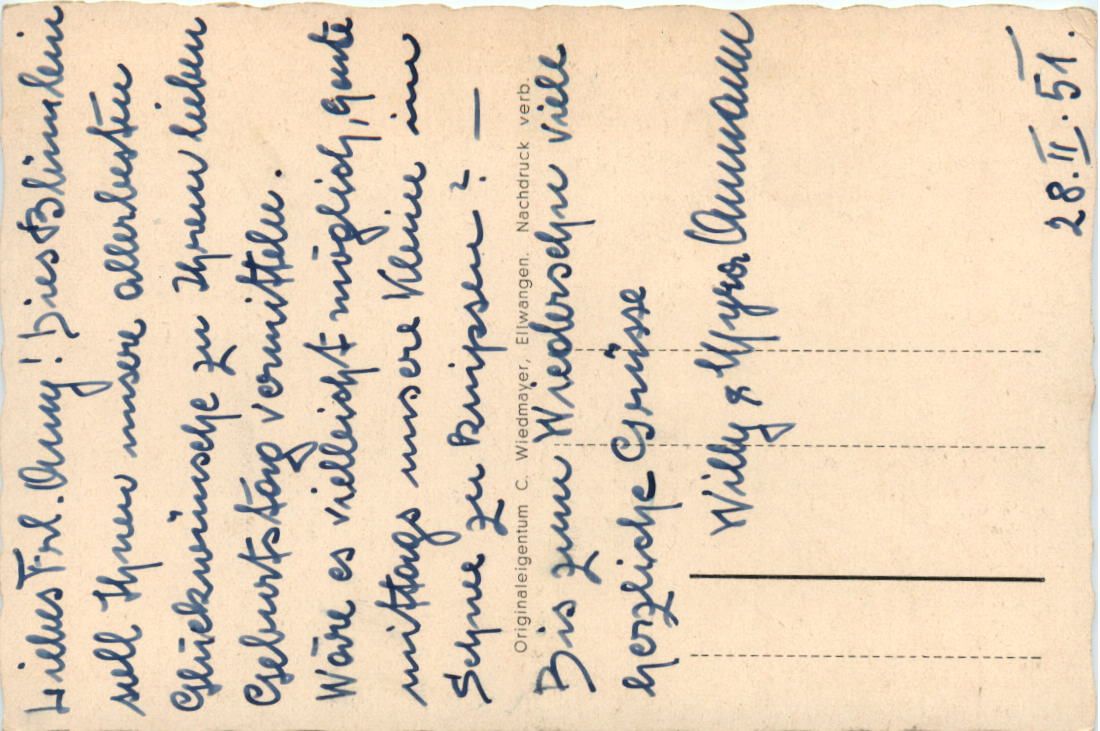 Liebes Frl. Anny! Dies Blümlein
soll Ihnen unsere allerbesten
Glückwünsche zu Ihrem lieben
Geburtstag vermitteln.
Wäre es vielleicht möglich, heute
mittags unsere Kleine im
Schnee zu knipsen? —
Originaleigentum C. Wiedmayer, Ellwangen. Nachdruck verb.
Bis zum Wiedersehn viele
herzliche Grüsse
Willy & Myra Ammann
28. II. 51.